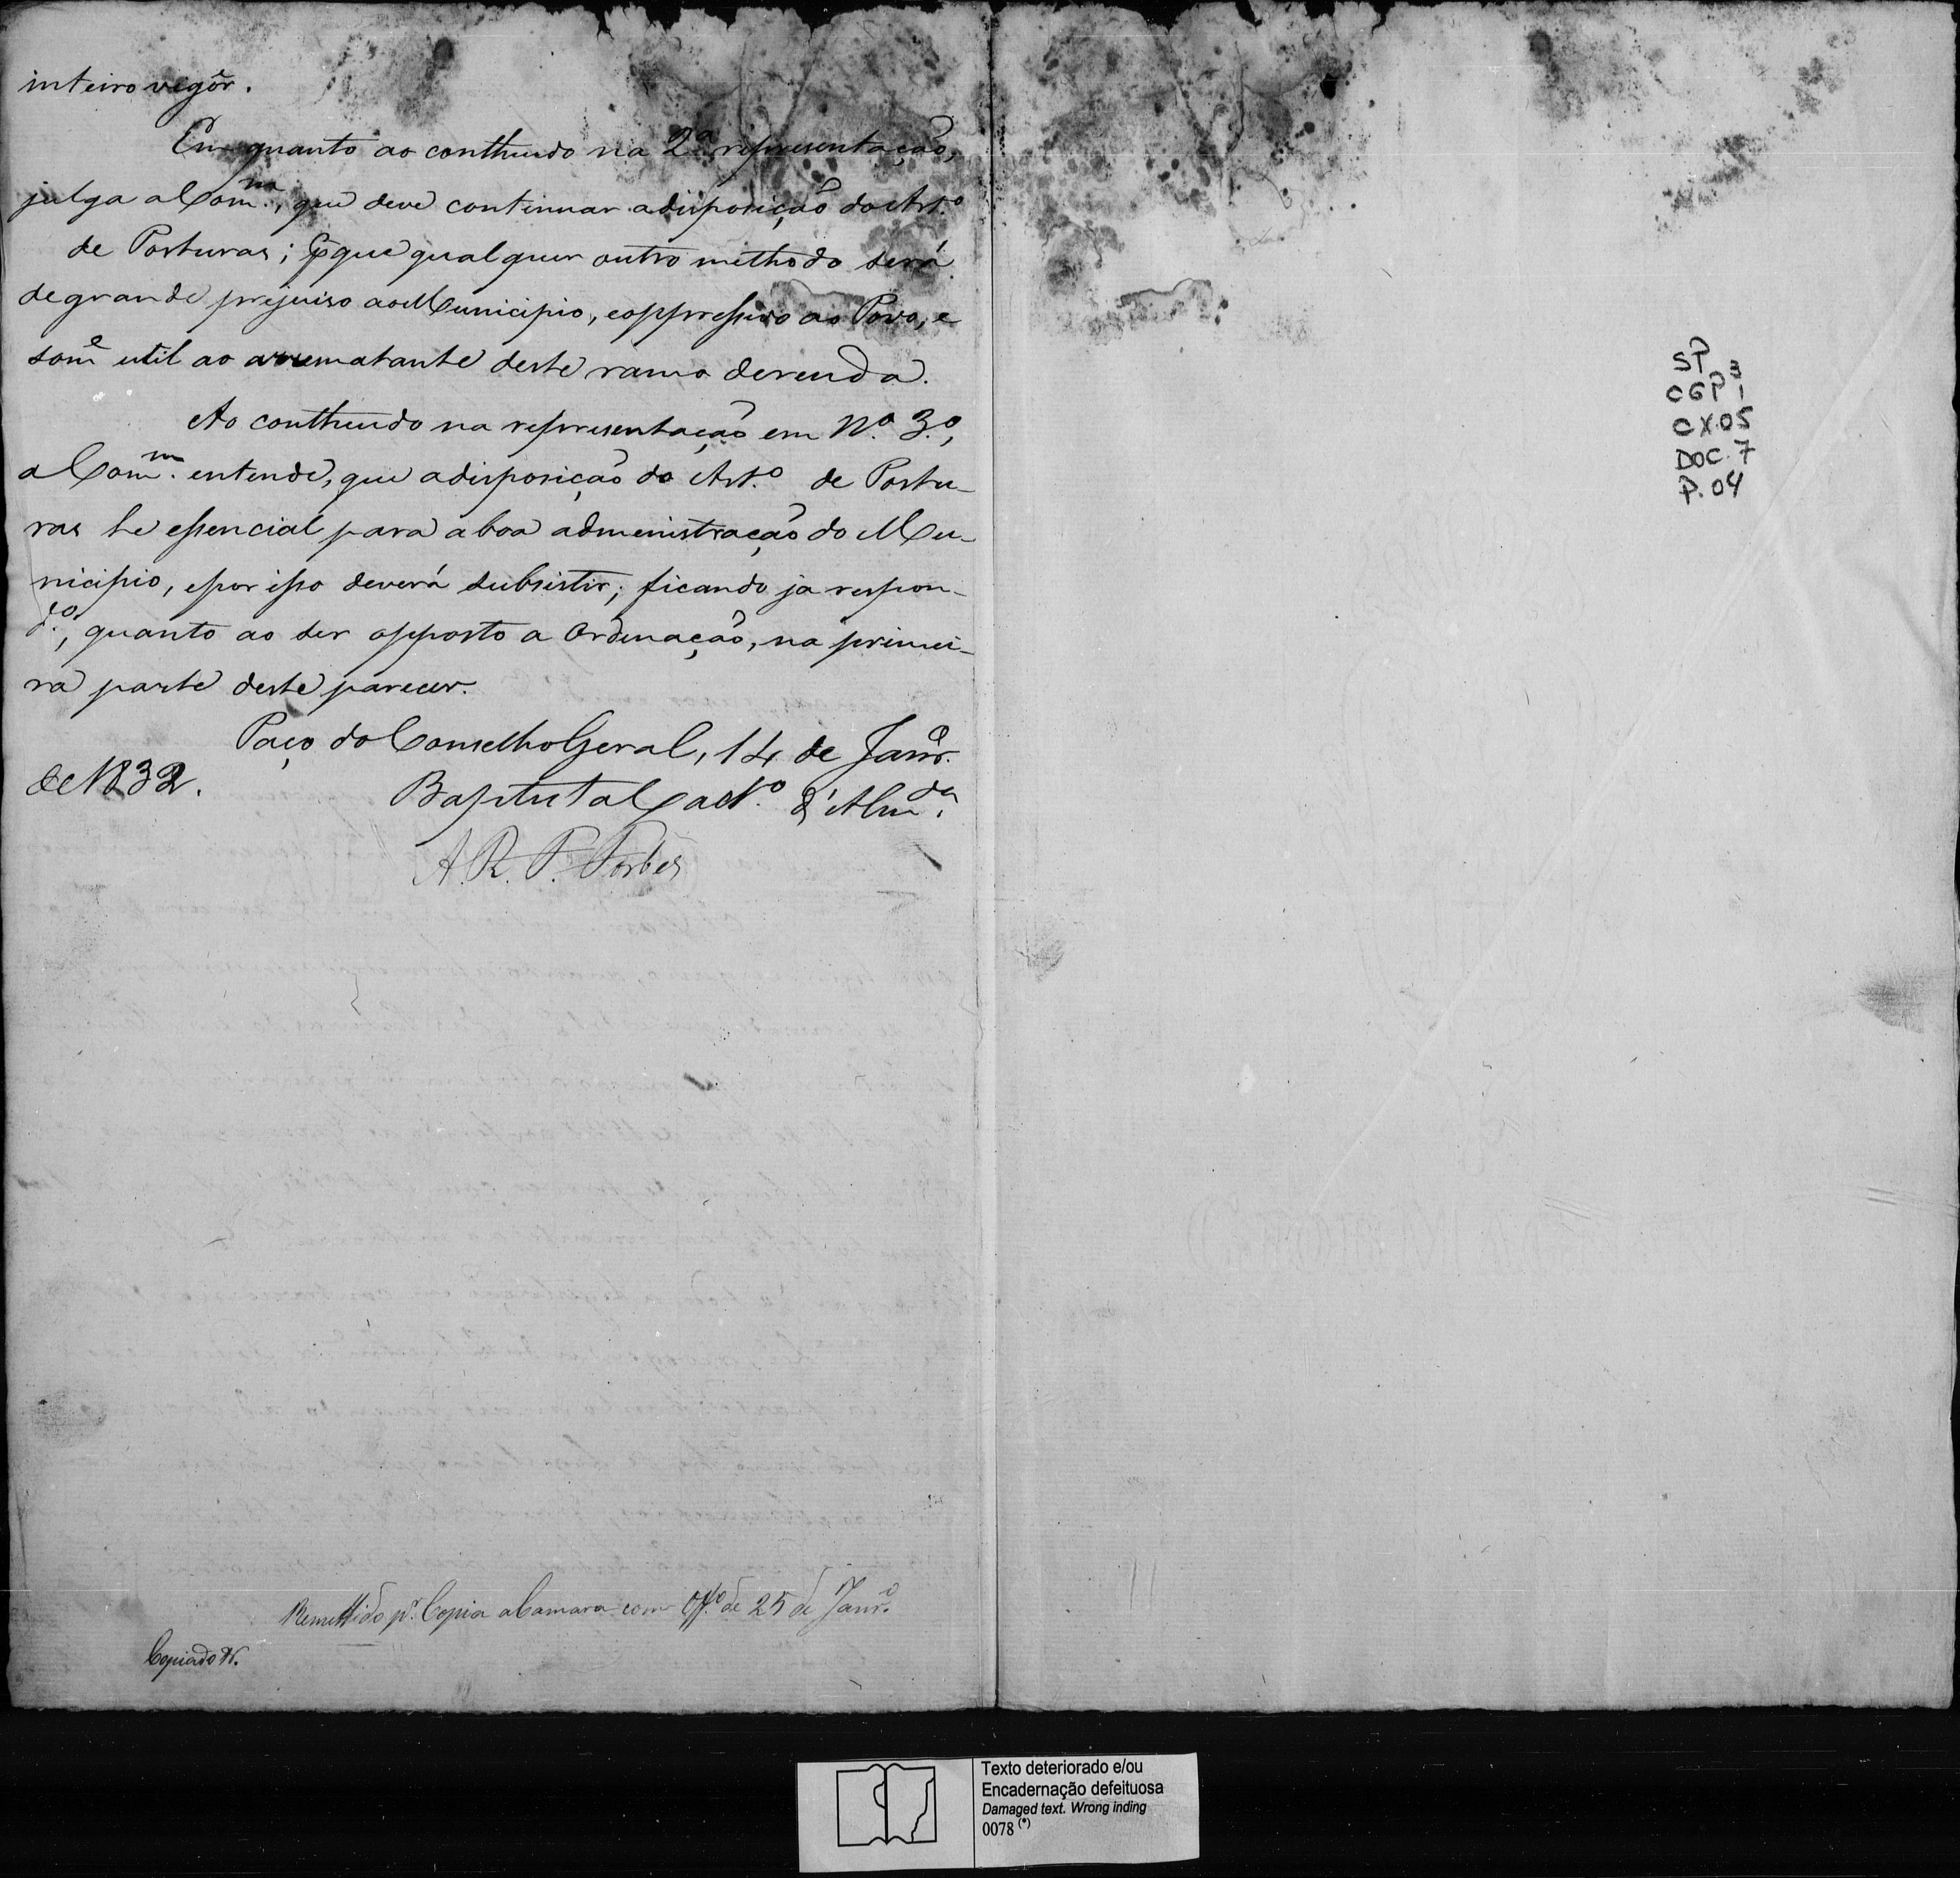 inteiro vegôr.
Em quanto ao conthendo na 2ª representação,
julga a Com.m, que deve continuar a disposição do Art.º
de Posturas; que qualquer outro methodo será
de grande prejuiso ao Municipio, e oppressivo ao Povo, e
som.e util ao arrematante deste ramo de renda.
Ao conthendo na representação em Nº 3.º,
a Com.m entende, que a disposição do Art.º de Postu-
ras he essencial para a boa administração do Mu-
nicipio, e por isso deverá subsistir; ficando ja respon-
d.º, quanto ao ser opposto a Ordenação, na primei-
ra parte deste parecer.
Paço do Conselho Geral, 14 de Janr.º
de 1832.
Baptista Cact.º d'Alm.da
A. R. P.
Remettido p.r Copia a Camara com Off.º de 25 de Janr.º
Copiado
SP
CGP 3
1
CX.05
DOC. 7
P. 04
Texto deteriorado e/ou
Encadernação defeituosa
Damaged text. Wrong inding
0078 (*)